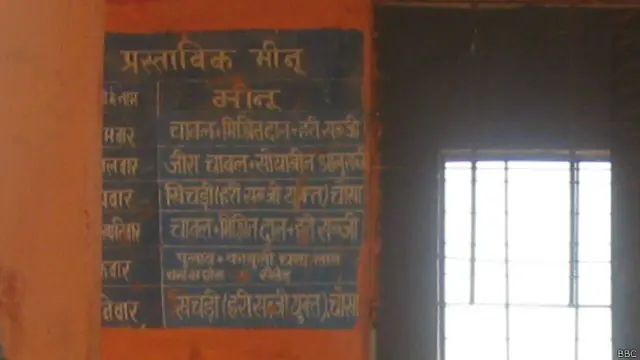 प्रस्ताविक मीनू
के नाम मीनू
मवार चावल + मिश्रित दाल + हरी सब्जी
लवार जीरा चावल + सोयाबीन आलू
धवार खिचड़ी (हरी सब्जी युक्त) चोखा
स्पतिवार चावल + मिश्रित दाल + हरी सब्जी
वार पुलाव + काबुली चना
निवार खिचड़ी (हरी सब्जी युक्त), चोखा
BBC